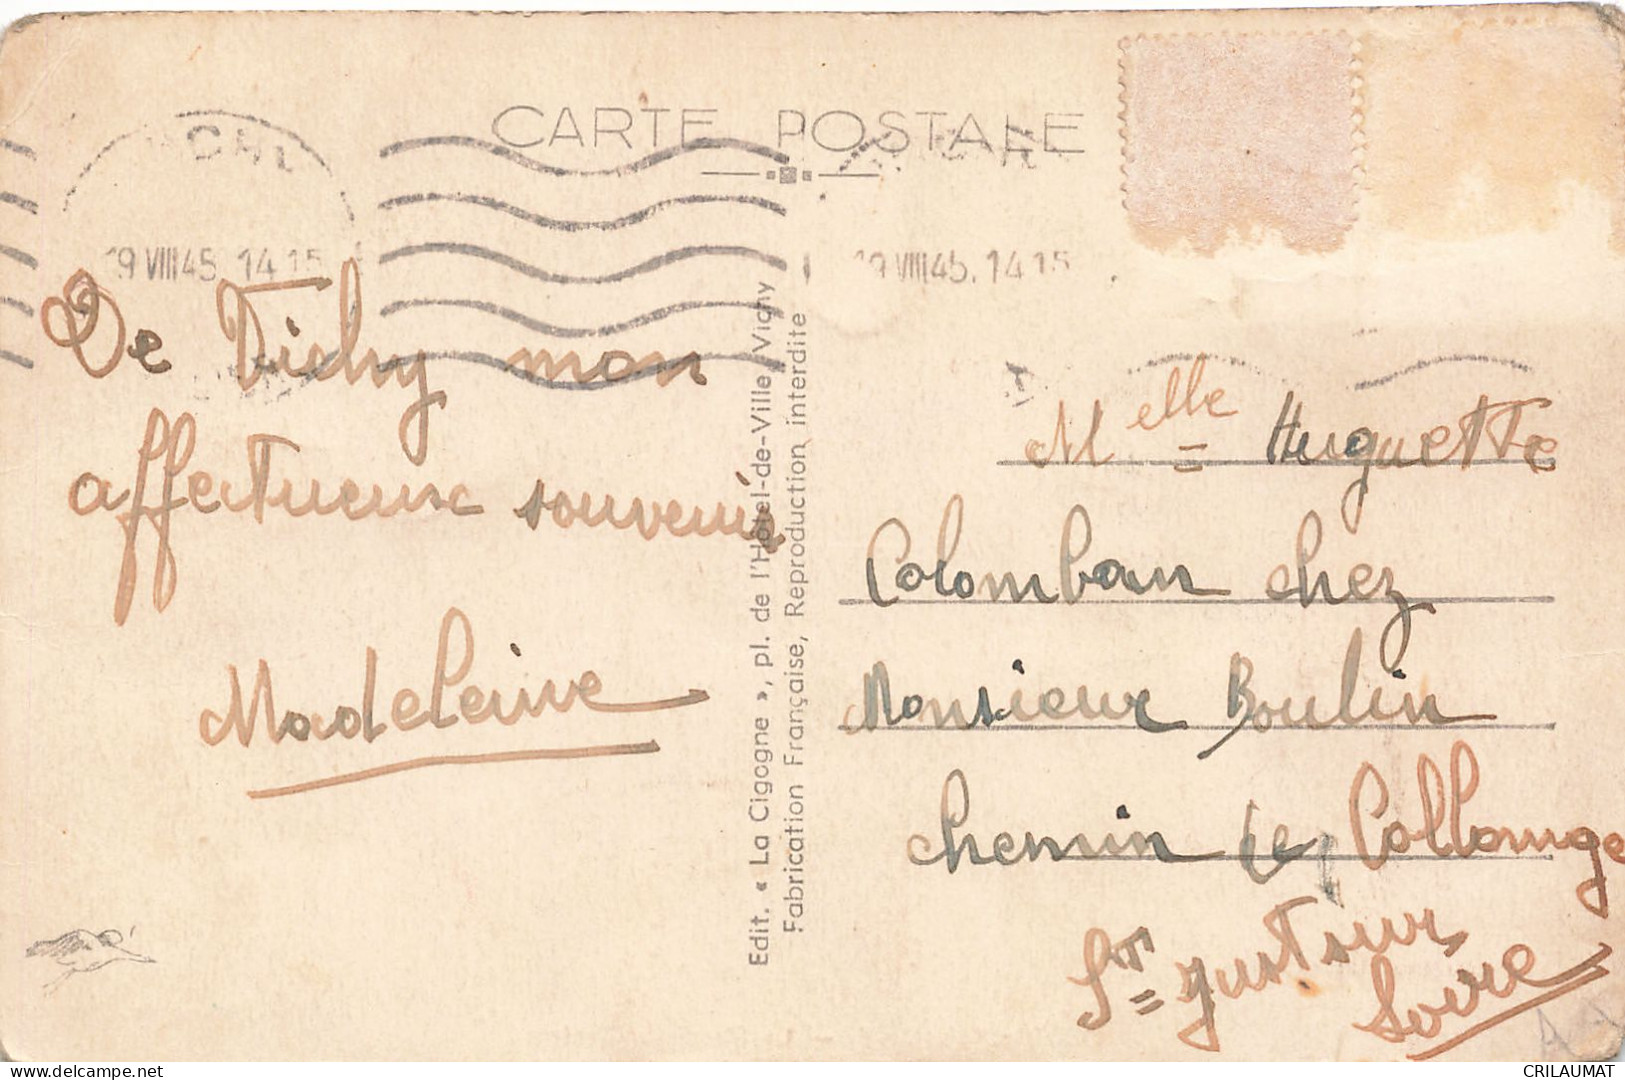 CARTE POSTALE
19 VIII 45. 14 15
19 VIII 45. 14 15
De Vichy mon
affectueux souvenir
Madeleine
Edit. « La Cigogne », pl. de l'Hôtel-de-Ville Vichy
Fabrication Française, Reproduction interdite
Melle Huguette
Colomban chez
Monsieur Boulin
chemin de Collonge
St Just sur
Loire
delcampe.net
CRILAUMAT